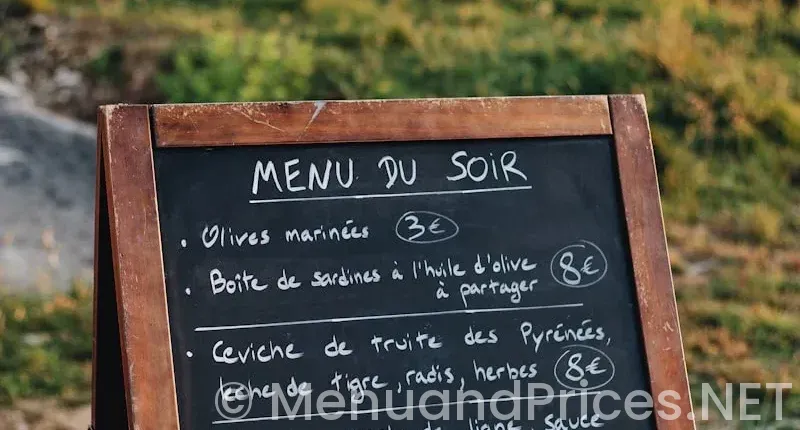 MENU DU SOIR
• Olives marinées 3€
• Boîte de sardines à l'huile d'olive 8€
à partager
• Ceviche de truite des Pyrénées,
leche de tigre, radis, herbes 8€
ligne, sauce
© MenuandPrices.NET